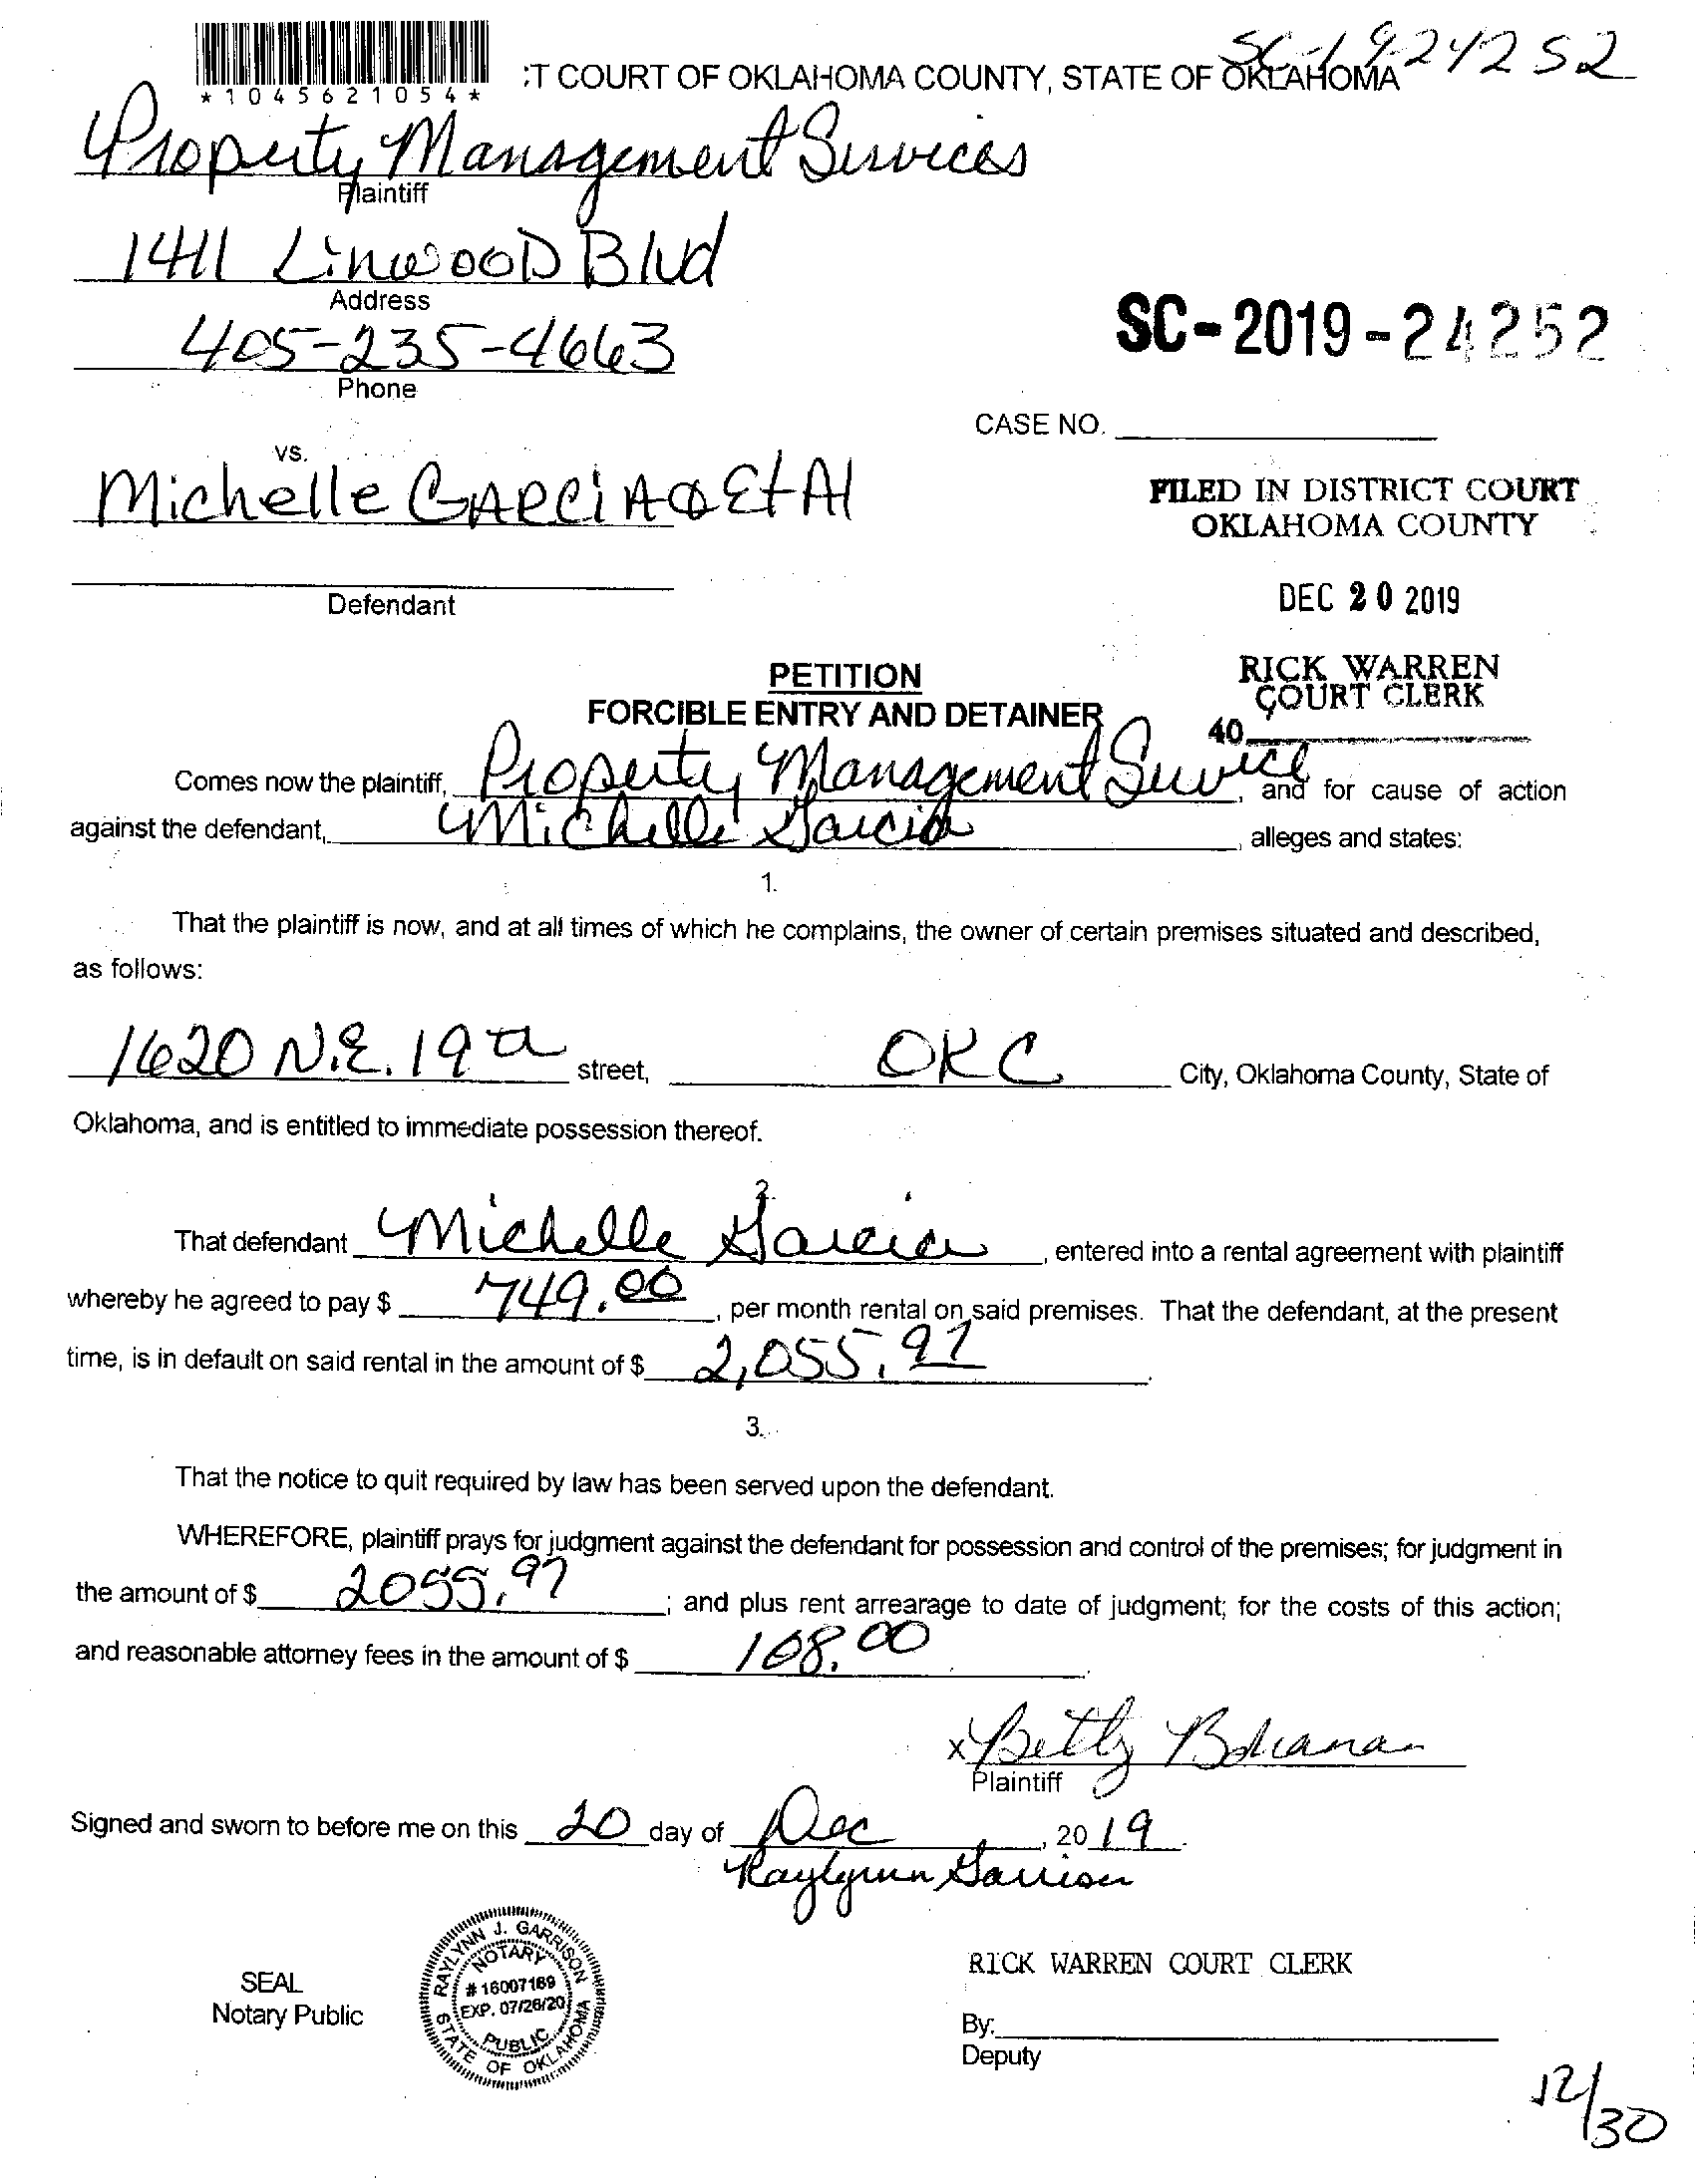 SC-19-24252
*1045621054*
:T COURT OF OKLAHOMA COUNTY, STATE OF OKLAHOMA
Property Management Services
Plaintiff
1411 LinwooD Blvd
Address
405-235-4663
Phone
SC-2019-24252
CASE NO.
vs.
Michelle GARCIA Et Al
FILED IN DISTRICT COURT
OKLAHOMA COUNTY
Defendant
DEC 20 2019
PETITION
RICK WARREN
COURT CLERK
FORCIBLE ENTRY AND DETAINER
40
Comes now the plaintiff, Property Management Service, and for cause of action
against the defendant, Michelle Garcia, alleges and states:
1.
That the plaintiff is now, and at all times of which he complains, the owner of certain premises situated and described,
as follows:
1620 N.E. 19th street, OKC City, Oklahoma County, State of
Oklahoma, and is entitled to immediate possession thereof.
2.
That defendant Michelle Garcia, entered into a rental agreement with plaintiff
whereby he agreed to pay $ 749.00, per month rental on said premises. That the defendant, at the present
time, is in default on said rental in the amount of $ 2,055.97.
3.
That the notice to quit required by law has been served upon the defendant.
WHEREFORE, plaintiff prays for judgment against the defendant for possession and control of the premises; for judgment in
the amount of $ 2055.97; and plus rent arrearage to date of judgment; for the costs of this action;
and reasonable attorney fees in the amount of $ 108.00.
x Betty Bohanan
Plaintiff
Signed and sworn to before me on this 20 day of Dec, 2019.
Raylynn Garrison
SEAL
Notary Public
RAYLYNN J. GARRISON
NOTARY
# 16007169
EXP. 07/28/20
PUBLIC
STATE OF OKLAHOMA
RICK WARREN COURT CLERK
By:
Deputy
12/30